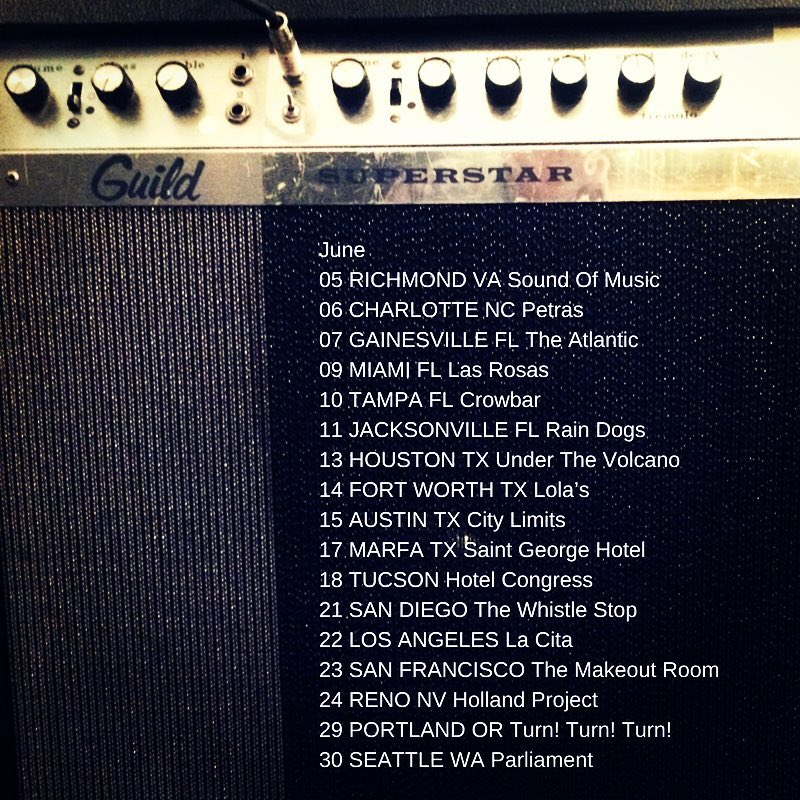 Guild SUPERSTAR
tremolo
June
05 RICHMOND VA Sound Of Music
06 CHARLOTTE NC Petras
07 GAINESVILLE FL The Atlantic
09 MIAMI FL Las Rosas
10 TAMPA FL Crowbar
11 JACKSONVILLE FL Rain Dogs
13 HOUSTON TX Under The Volcano
14 FORT WORTH TX Lola’s
15 AUSTIN TX City Limits
17 MARFA TX Saint George Hotel
18 TUCSON Hotel Congress
21 SAN DIEGO The Whistle Stop
22 LOS ANGELES La Cita
23 SAN FRANCISCO The Makeout Room
24 RENO NV Holland Project
29 PORTLAND OR Turn! Turn! Turn!
30 SEATTLE WA Parliament